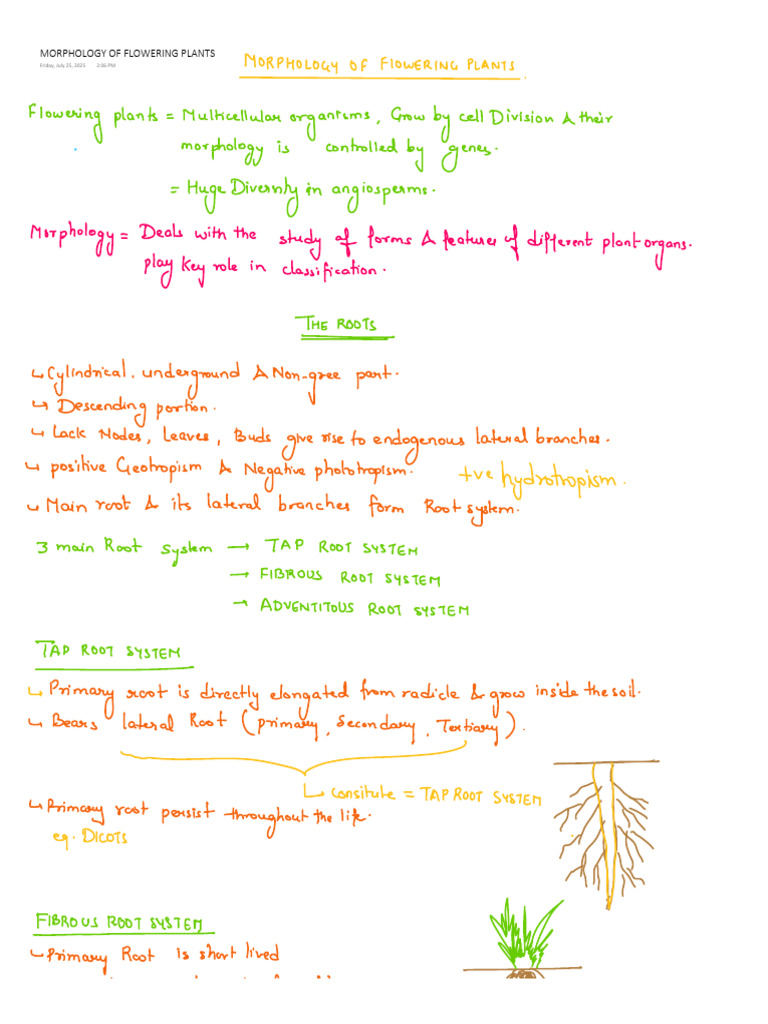 MORPHOLOGY OF FLOWERING PLANTS
Friday, July 25, 2025 2:06 PM
MORPHOLOGY OF FLOWERING PLANTS.
Flowering plants = Multicellular organisms, Grow by cell Division & their
morphology is controlled by genes.
= Huge Diversity in angiosperms.
Morphology = Deals with the study of forms & features of different plant organs.
play key role in classification.
THE ROOTS
↳ Cylindrical, underground & Non-gree part.
↳ Descending portion.
↳ Lack Nodes, Leaves, Buds give rise to endogenous lateral branches.
↳ positive Geotropism & Negative phototropism. +ve hydrotropism.
↳ Main root & its lateral branches form Root system.
3 main Root system → TAP ROOT SYSTEM
→ FIBROUS ROOT SYSTEM
→ ADVENTITOUS ROOT SYSTEM
TAP ROOT SYSTEM
↳ Primary root is directly elongated from radicle & grow inside the soil.
↳ Bears lateral Root (primary, Secondary, Tertiary).
↳ Consitute = TAP ROOT SYSTEM
↳ Primary root persist throughout the life.
eg. DICOTS
FIBROUS ROOT SYSTEM
↳ Primary Root is short lived